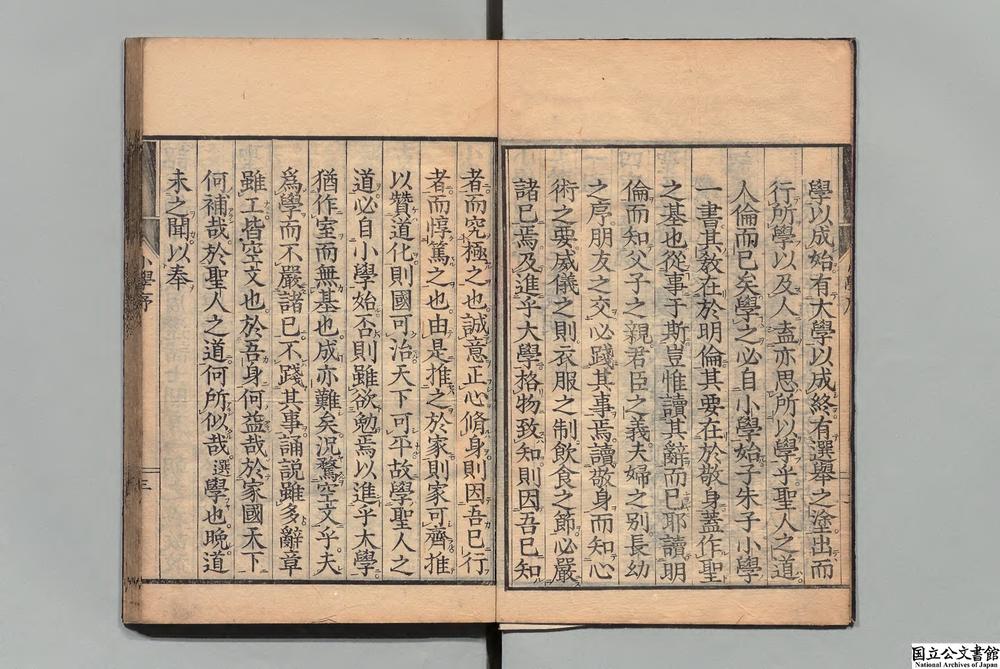 學以成始有大學以成終有選舉之塗出而
行所學以及人盖亦思所以學乎聖人之道
人倫而已矣學之必自小學始子朱子小學
一書其教在於明倫其要在於敬身蓋作聖
之基也從事于斯豈惟讀其辭而已耶讀明
倫而知父子之親君臣之義夫婦之別長幼
之序朋友之交必踐其事焉讀敬身而知心
術之要威儀之則衣服之制飲食之節必嚴
諸已焉及進乎大學格物致知則因吾已知
者而究極之也誠意正心脩身則因吾已行
者而惇篤之也由是推之於家則家可齊推
以贊道化則國可治天下可平故學聖人之
道必自小學始否則雖欲勉焉以進乎大學
猶作室而無基也成亦難矣況騖空文乎夫
爲學而不嚴諸已不踐其事誦説雖多辭章
雖工皆空文也於吾身何益哉於家國天下
何補哉於聖人之道何所似哉選學也晚道
未之聞以奉
小學序
三
国立公文書館
National Archives of Japan